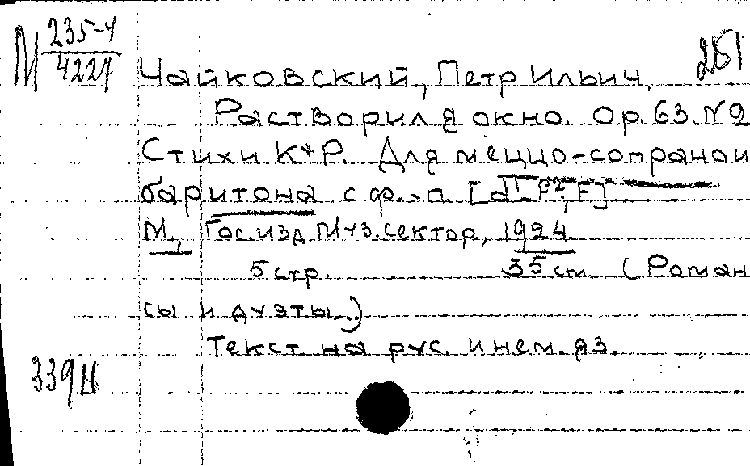 М 235-4
4227
251
Чайковский, Петр Ильич.
Растворил я окно. Op. 63. №2
Стихи К*Р. Для меццо-сопрано и
баритона с ф.-п.
М., Гос. изд. Муз. сектор, 1924
5 стр. 35 cm (Роман
сы и дуэты.)
Текст на рус. и нем. яз.